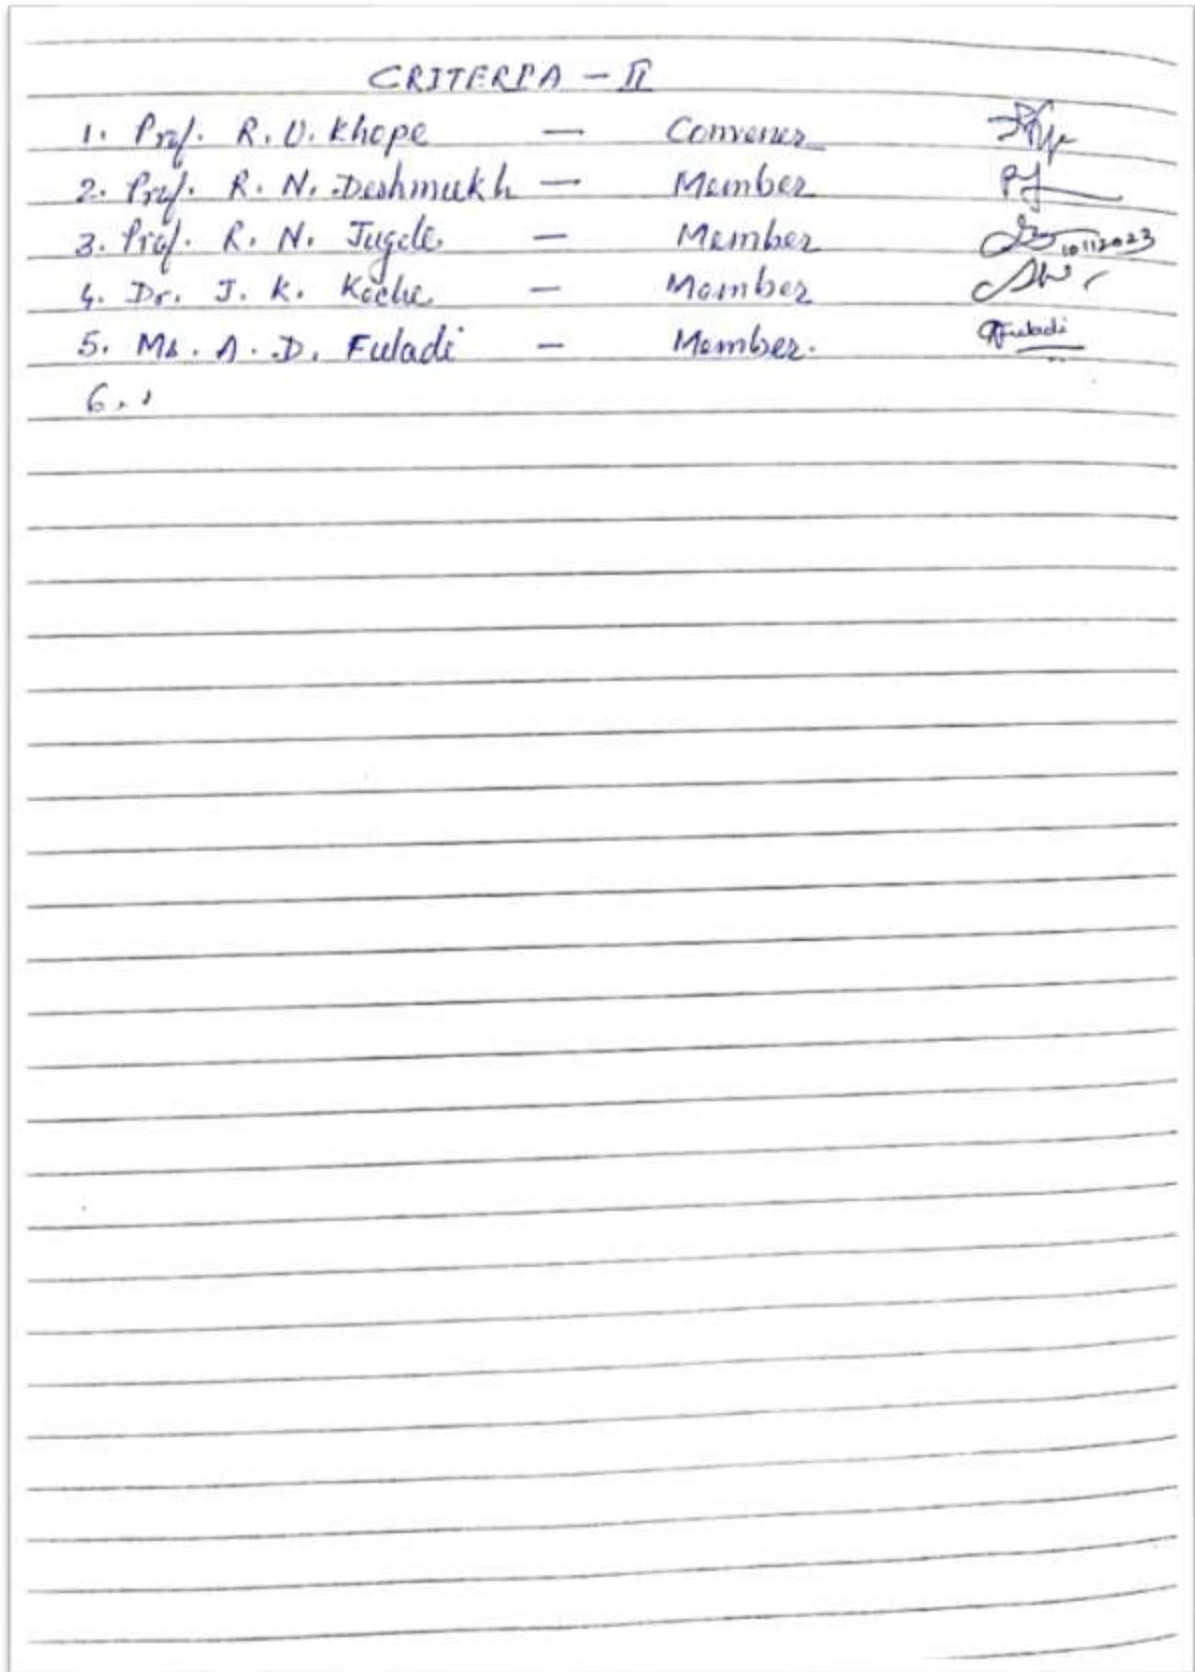 CRITERIA - II
1. Prof. R. U. Khope — Convener
2. Prof. R. N. Deshmukh — Member
3. Prof. R. N. Jugele — Member 10112023
4. Dr. J. K. Keche — Member
5. Ms. A. D. Fuladi — Member. Fuladi
6.